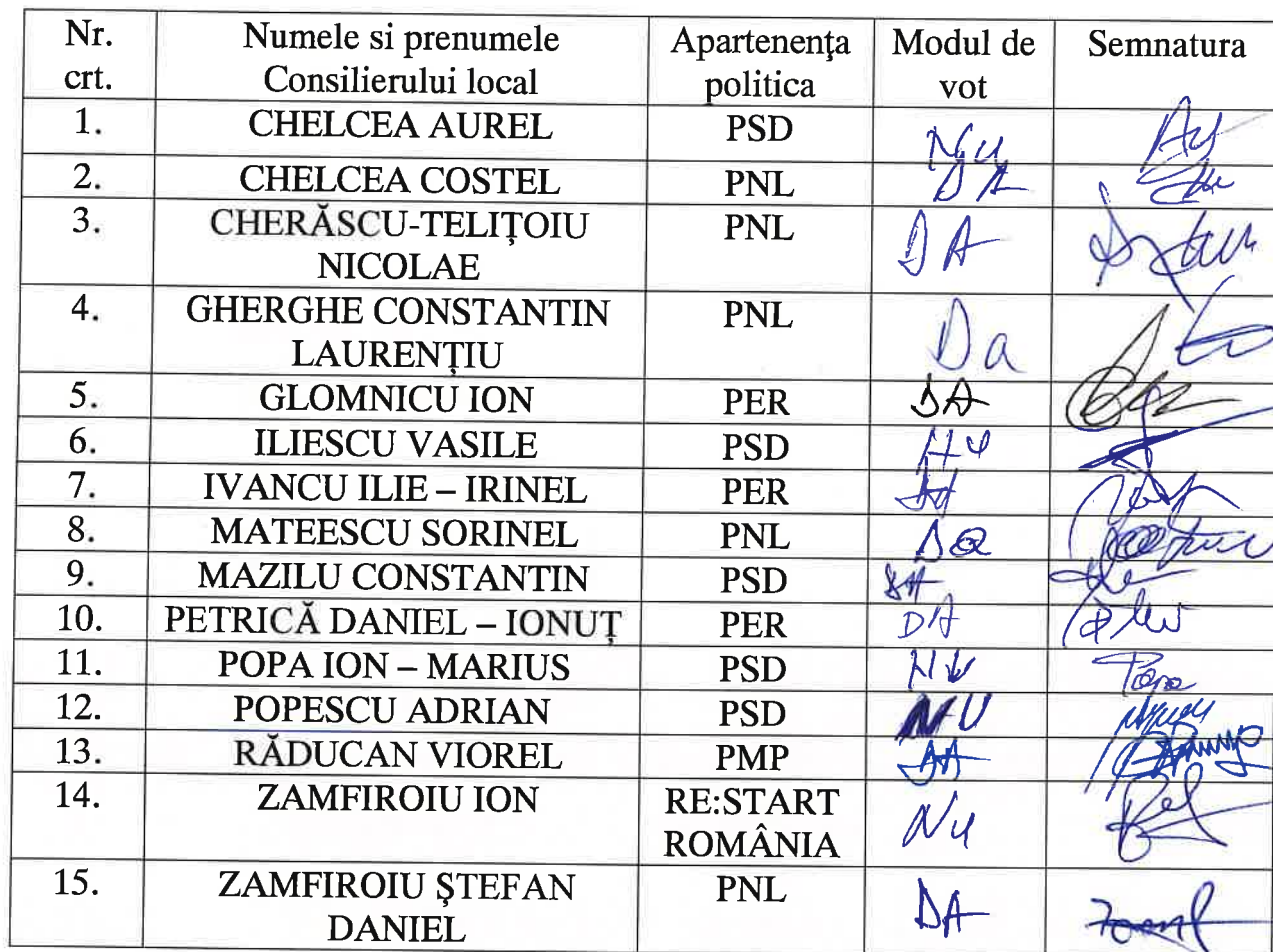 Nr. crt. Numele si prenumele Consilierului local Apartenenţa politica Modul de vot Semnatura
1. CHELCEA AUREL PSD Nu
2. CHELCEA COSTEL PNL DA
3. CHERĂSCU-TELIŢOIU NICOLAE PNL DA
4. GHERGHE CONSTANTIN LAURENŢIU PNL Da
5. GLOMNICU ION PER DA
6. ILIESCU VASILE PSD NU
7. IVANCU ILIE – IRINEL PER DA
8. MATEESCU SORINEL PNL Da
9. MAZILU CONSTANTIN PSD DA
10. PETRICĂ DANIEL – IONUŢ PER DA
11. POPA ION – MARIUS PSD NU Popa
12. POPESCU ADRIAN PSD NU
13. RĂDUCAN VIOREL PMP DA
14. ZAMFIROIU ION RE:START ROMÂNIA Nu
15. ZAMFIROIU ŞTEFAN DANIEL PNL DA